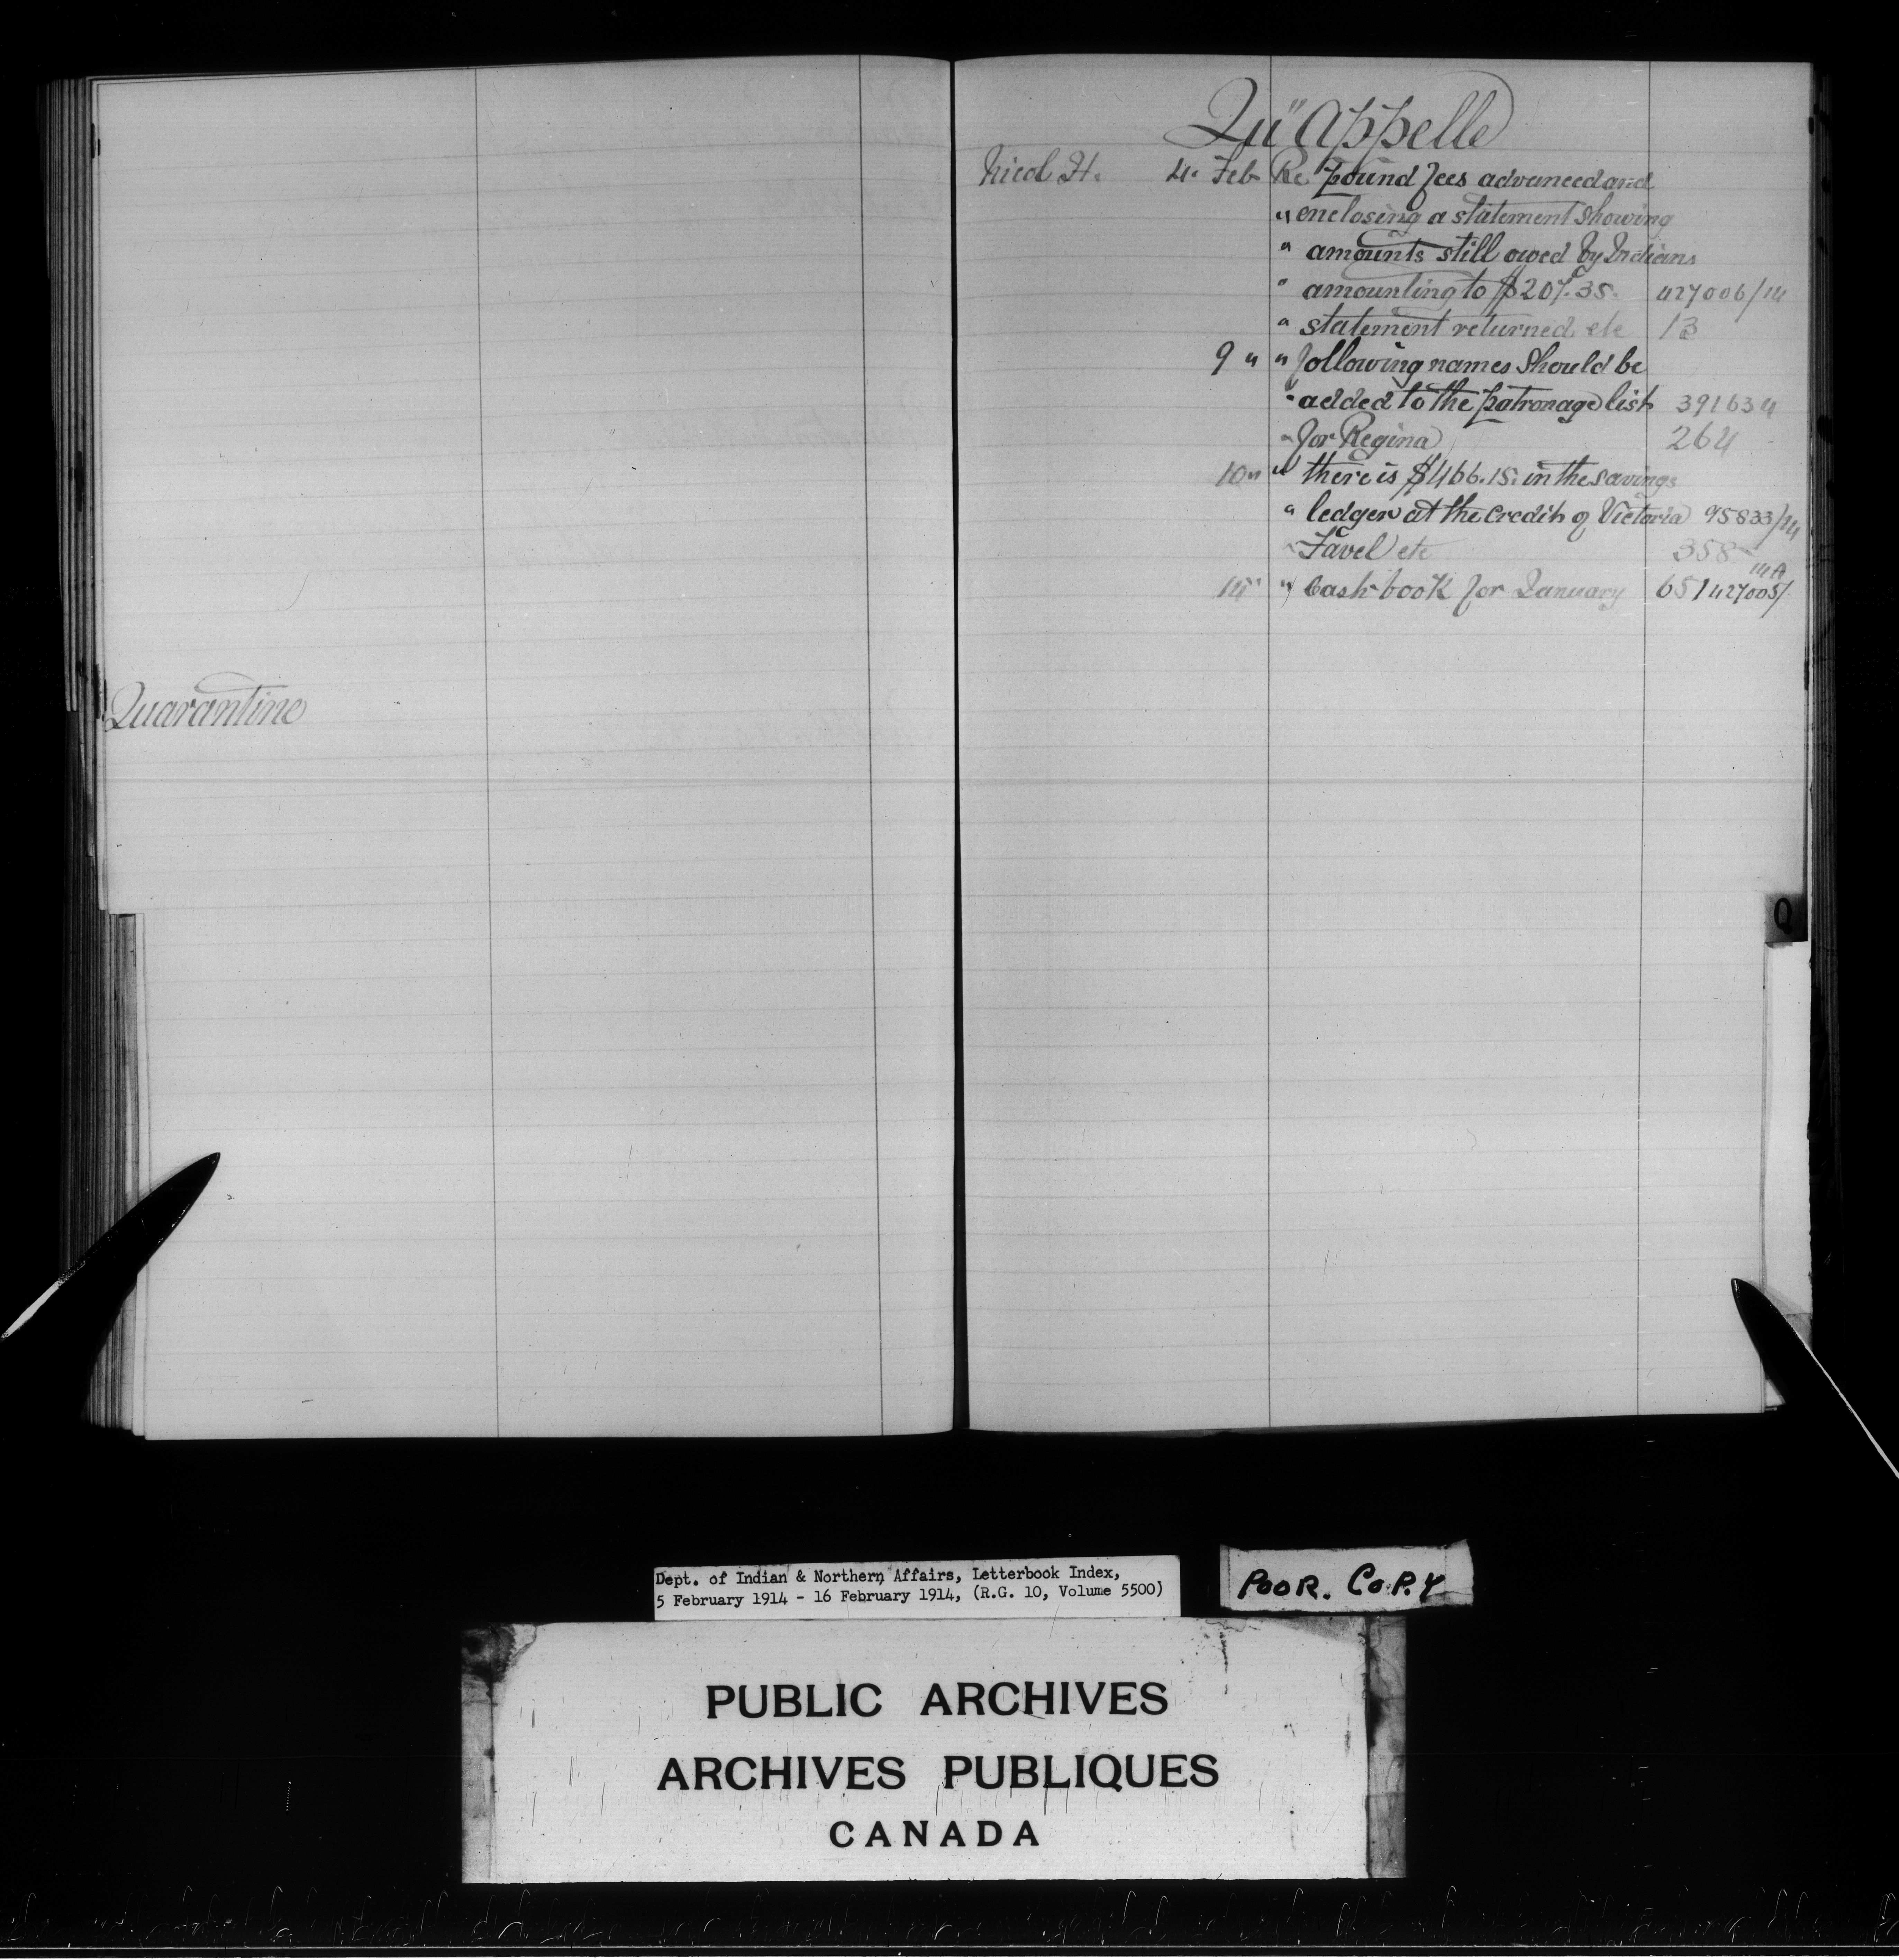 Quarantine
Qu"Appelle
Nicol H. 4. Feb. Re pound fees advanced and
" enclosing a statement showing
" amounts still owed by Indians
" amounting to $207.35. 427006/14
" statement returned etc 13
9 " " following names should be
" added to the patronage list 391634
" for Regina 264
10 " " there is $466.15. in the savings
" ledger at the credit of Victoria 95833/14
" Favel etc 358
14 " " Cash book for January 651 427005/14A
Q
Dept. of Indian & Northern Affairs, Letterbook Index,
5 February 1914 - 16 February 1914, (R.G. 10, Volume 5500)
POOR. COPY
PUBLIC ARCHIVES
ARCHIVES PUBLIQUES
CANADA